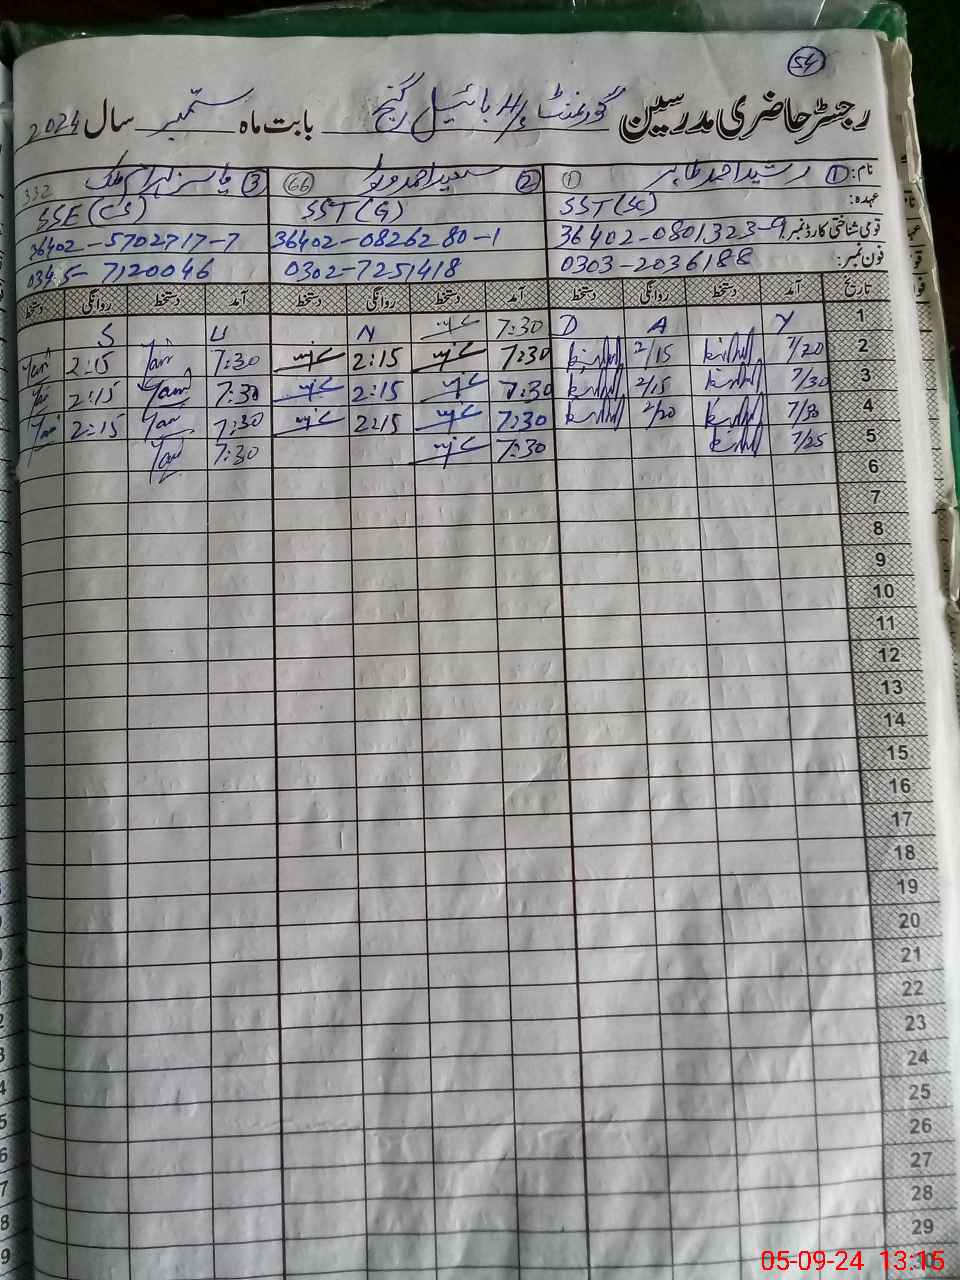 54
رجسٹر حاضری مدرسین گورنمنٹ بابت ماہ ستمبر سال 2024
نام: ① رشید احمد طاہر ① ② سعید احمد 66 ③ 332
عہدہ: SST(SC) SST(G) SSE(CS)
قومی شناختی کارڈ نمبر: 36402-0801323-9 36402-0826280-1 36402-5702717-7
فون نمبر: 0303-2036188 0302-7251418 0345-7120046
تاریخ آمد دستخط روانگی دستخط آمد دستخط روانگی دستخط آمد دستخط روانگی دستخط
1 Y A D 7:30 N U S
2 7/20 2/15 7:30 2:15 7:30 2:15
3 7/30 2/15 7:30 2:15 7:30 2:15
4 2/20 7:30 2:15 7:30 2:15
5 7/25 7:30 7:30
6
7
8
9
10
11
12
13
14
15
16
17
18
19
20
21
22
23
24
25
26
27
28
29
30
05-09-24 13:15